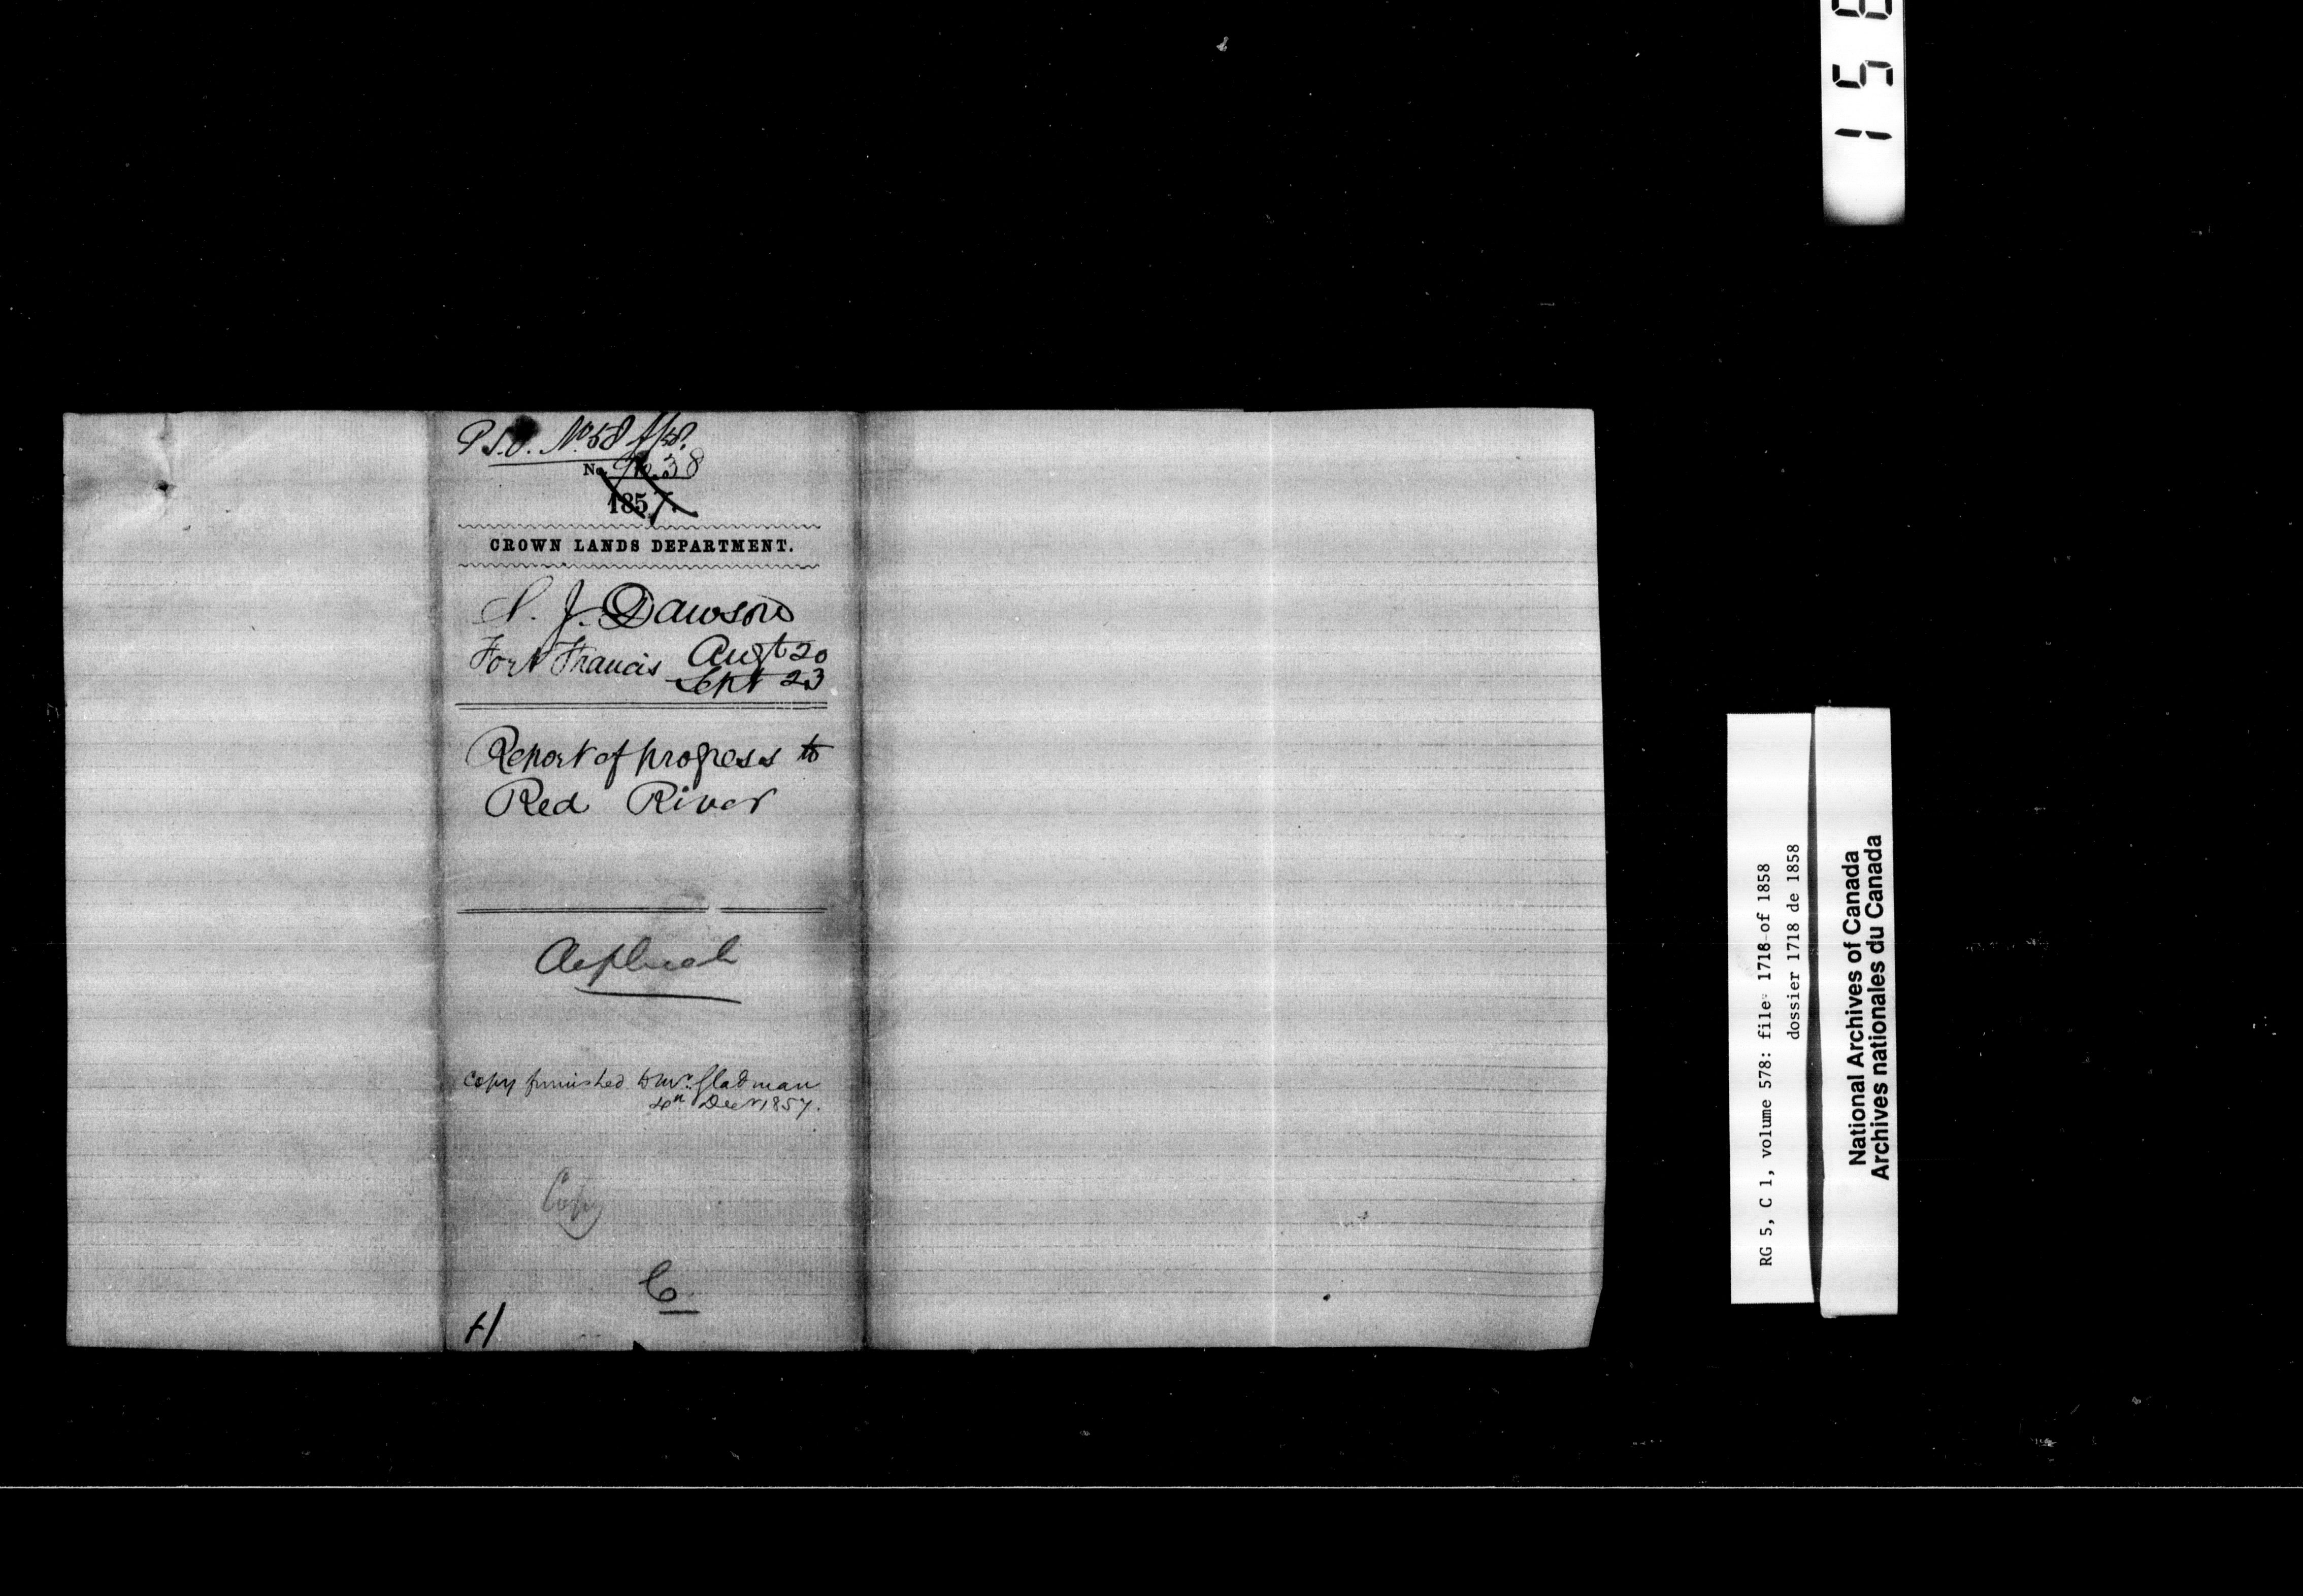 P.S.O. No 58 f/58.
No. 9638
1857.
CROWN LANDS DEPARTMENT.
S. J. Dawson
Fort Francis Augt 20
Sept 23
Report of progress to
Red River
Copy furnished to Mr. Gladman
4th Decr 1857.
Copy
C
H
RG 5, C 1, volume 578: file 1718 of 1858
dossier 1718 de 1858
National Archives of Canada
Archives nationales du Canada
1 5 8